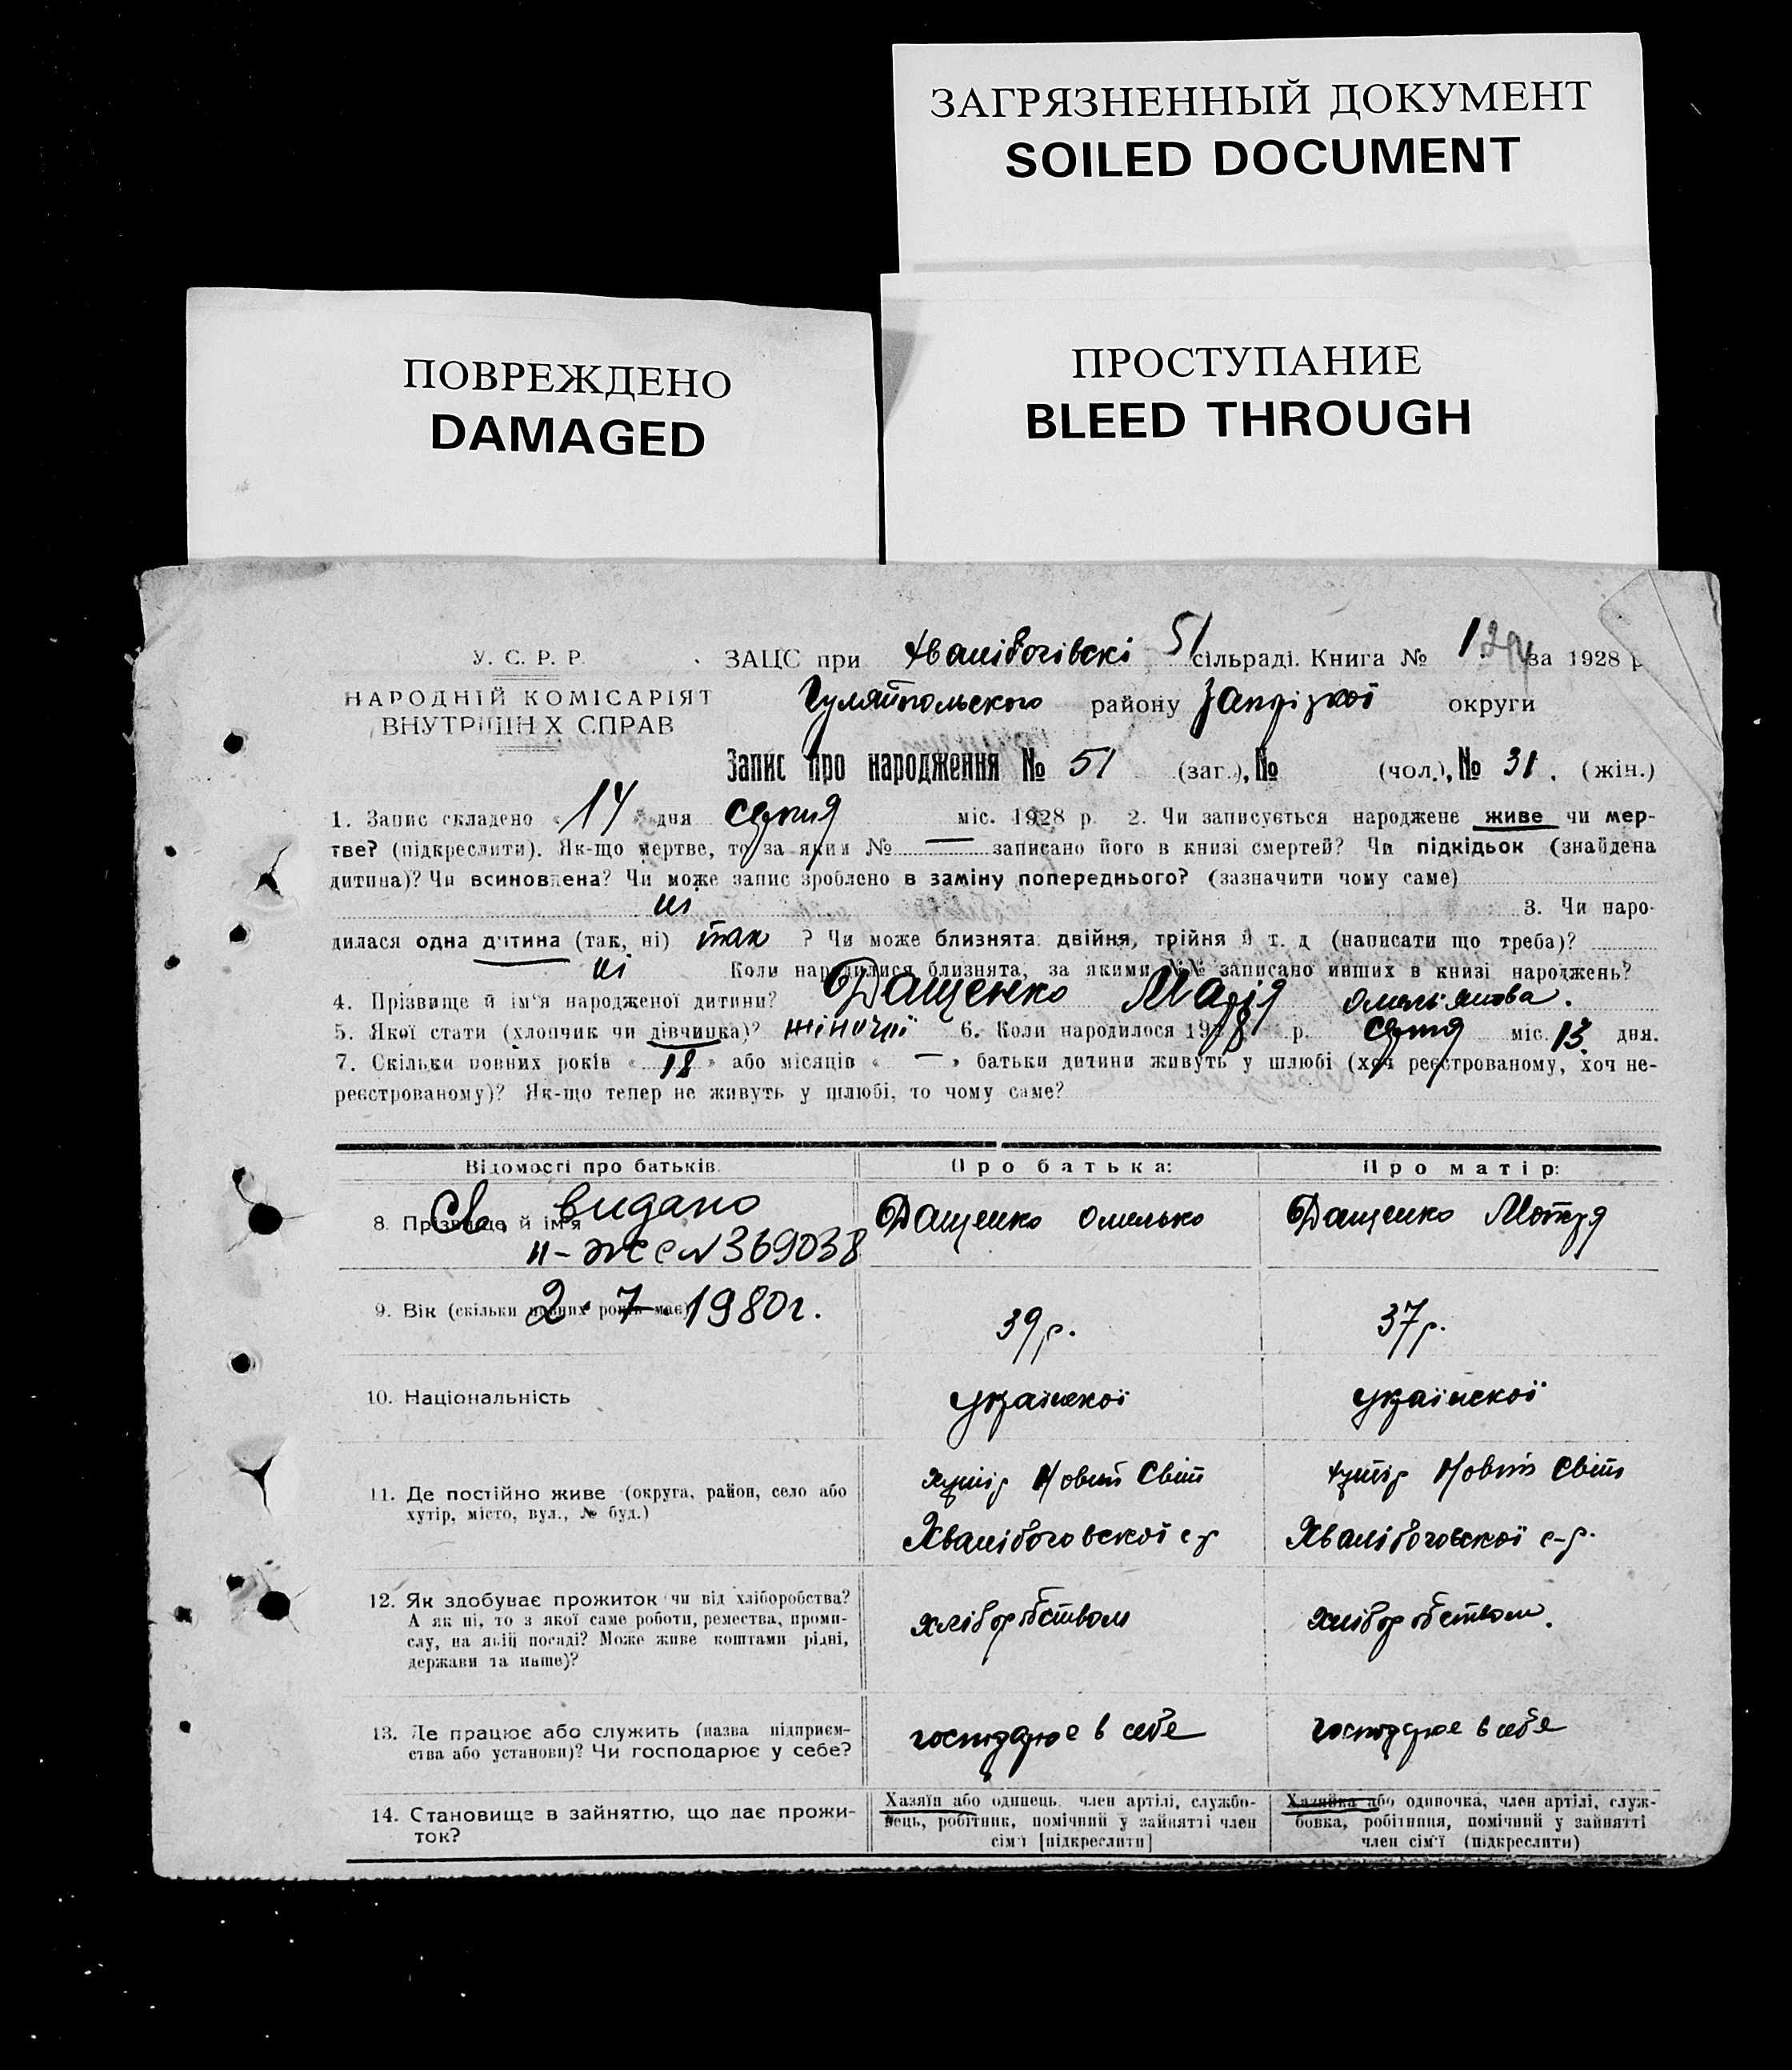 ЗАГРЯЗНЕННЫЙ ДОКУМЕНТ
SOILED DOCUMENT
ПОВРЕЖДЕНО
DAMAGED
ПРОСТУПАНИЕ
BLEED THROUGH
У. С. Р. Р.
НАРОДНІЙ КОМІСАРІЯТ
ВНУТРІШНІХ СПРАВ
ЗАЦС при Хвалібогівскі 51 сільраді. Книга № 1 за 1928 р
Гуляйпольского району Запрізкої округи
Запис про народження № 51 (заг.), № (чол.), № 31. (жін.)
1. Запис складено « 14 » дня серпня міс. 1928 р. 2. Чи записується народжене живе чи мер-
тве? (підкреслити). Як-що мертве, то за яким № — записано його в книзі смертей? Чи підкідьок (знайдена
дитина)? Чи всиновлена? Чи може запис зроблено в заміну попереднього? (зазначити чому саме)
ні 3. Чи наро-
дилася одна дитина (так, ні) так ? Чи може близнята: двійня, трійня й т. д (написати що треба)?
ні Коли народилися близнята, за якими №№ записано инших в книзі народжень?
4. Прізвище й ім'я народженої дитини? Дащенко Марія Омельянова.
5. Якої стати (хлопчик чи дівчинка)? жіночої 6. Коли народилося 1928 р. серпня міс. 13 дня.
7. Скільки повних років « 18 » або місяців « — » батьки дитини живуть у шлюбі (хоч реєстрованому, хоч не-
реєстрованому)? Як-що тепер не живуть у шлюбі, то чому саме?
Відомості про батьків. Про батька: Про матір:
8. Прізвище й ім'я Дащенко Омелько Дащенко Мотря
Св. видано
II-ЖС № 369038
2. 7. 1980г.
9. Вік (скільки повних років має) 39 р. 37 р.
10. Національність української української
11. Де постійно живе (округа, район, село або
хутір, місто, вул., № буд.)
хутір Новий Світ хутір Новий Світ
Хвалібоговской с-р Хвалібоговскої с-р.
12. Як здобуває прожиток чи від хліборобства?
А як ні, то з якої саме роботи, ремества, проми-
слу, на якій посаді? Може живе коштами рідні,
держави та инше)?
хліборобством хліборобством.
13. Де працює або служить (назва підприєм-
ства або установи)? Чи господарює у себе?
господарює в себе господарює в себе
14. Становище в зайняттю, що дає прожи-
ток?
Хазяїн або одинець, член артілі, службо-
вець, робітник, помічний у зайнятті член
сім'ї [підкреслити]
Хазяйка або одиночка, член артілі, служ-
бовка, робітниця, помічний у зайнятті
член сім'ї (підкреслити)